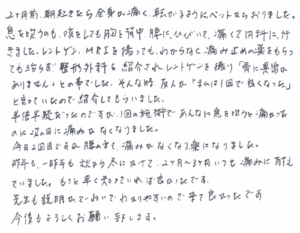 2ヶ月前、朝起きたら全身が痛く、転がるようにベットからおりました。
息を吸うのも、咳をしても胸と背中 脚にひびいて、痛くて内科に行
きました。レントゲン、MRIを撮っても、わからなく 痛み止めの薬をもらっ
ても治らず 整形外科を紹介されレントゲンを撮り「骨に異常は
ありません」との事でした。そんな時 友人と「まんは1回で良くなった」
と言っていたので紹介してもらいました。
半信半疑だったのですが、1回の施術であんなに息を吸うと痛かった
のに次の日に痛みがなくなりました。
今日2回目ですが 脚の方も、痛みがなくなり楽になりました。
昨年も、一昨年も 秋から冬にかけて、2ヶ月〜3ヶ月いつも痛みに耐え
ていました。もっと早く知っていれば良かったです。
先生も説明がていねいでわかりやすいので 来て良かったです
今後もよろしくお願い致します。